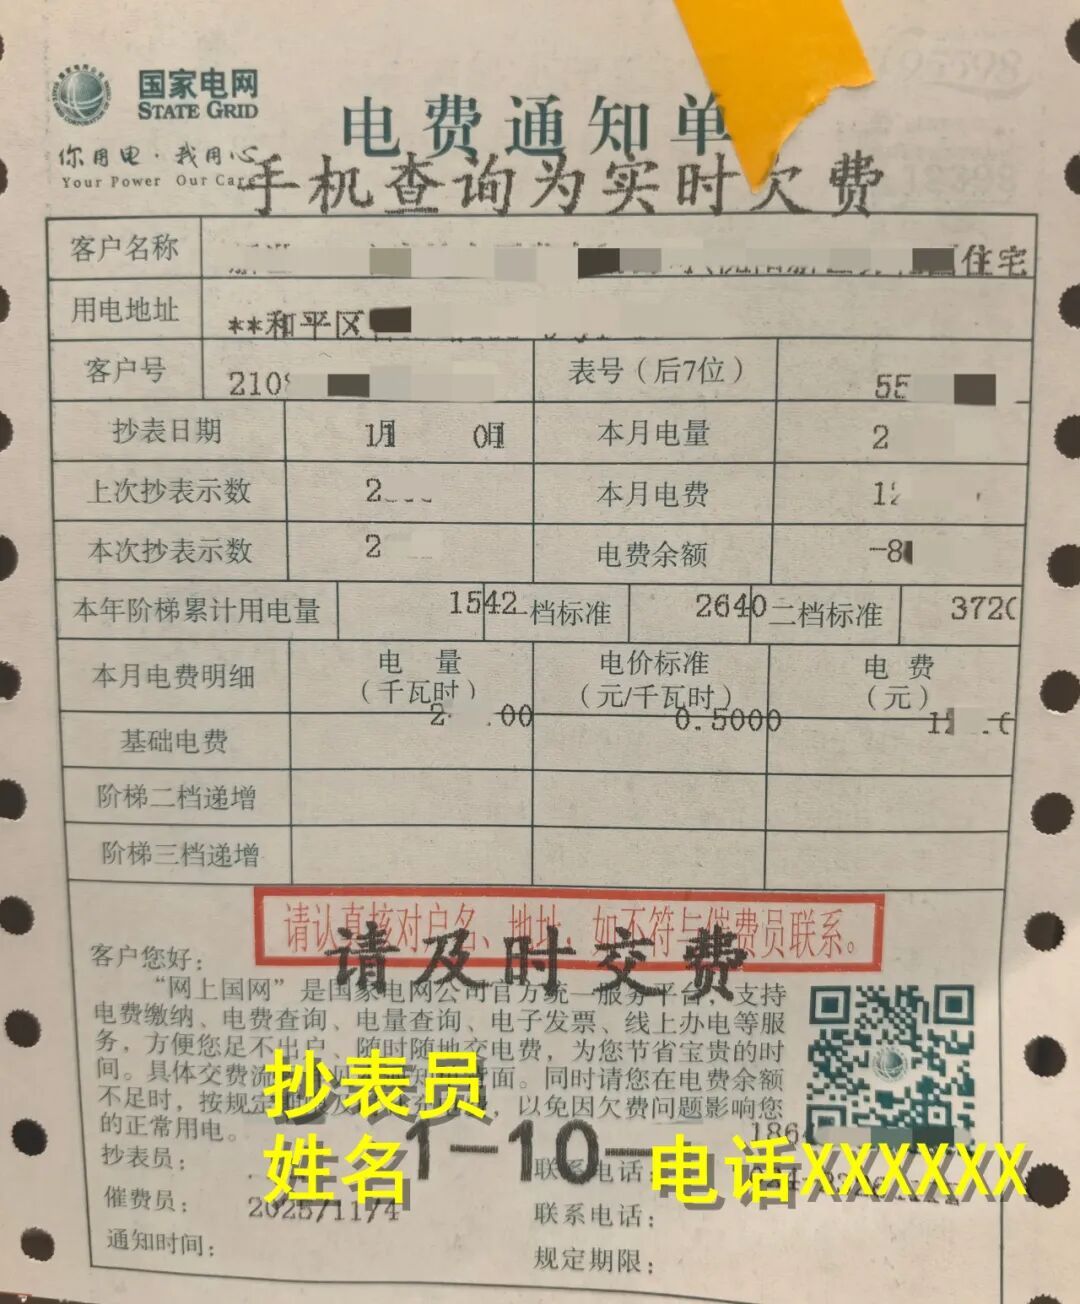 国家电网
STATE GRID
电费通知单
95598
你用电·我用心
Your Power Our Care
手机查询为实时欠费
客户名称 住宅
用电地址 **和平区
客户号 210 表号（后7位） 55
抄表日期 11月 01日 本月电量 2
上次抄表示数 2 本月电费 1
本次抄表示数 2 电费余额 -8
本年阶梯累计用电量 1542 一档标准 2640 二档标准 3720
本月电费明细 电 量 电价标准 电 费
（千瓦时） （元/千瓦时） （元）
基础电费 2 .00 0.5000 1
阶梯二档递增
阶梯三档递增
请认真核对户名、地址，如不符与催费员联系。
请及时交费
客户您好：
“网上国网”是国家电网公司官方统一服务平台，支持
电费缴纳、电费查询、电量查询、电子发票、线上办电等服
务，方便您足不出户、随时随地交电费，为您节省宝贵的时
间。具体交费流 面。同时请您在电费余额
不足时，按规定 ，以免因欠费问题影响您
的正常用电。
抄表员
姓名
1-10-
电话XXXXXX
抄表员： 联系电话： 186
催费员： 2025/11/4 联系电话：
通知时间： 规定期限：